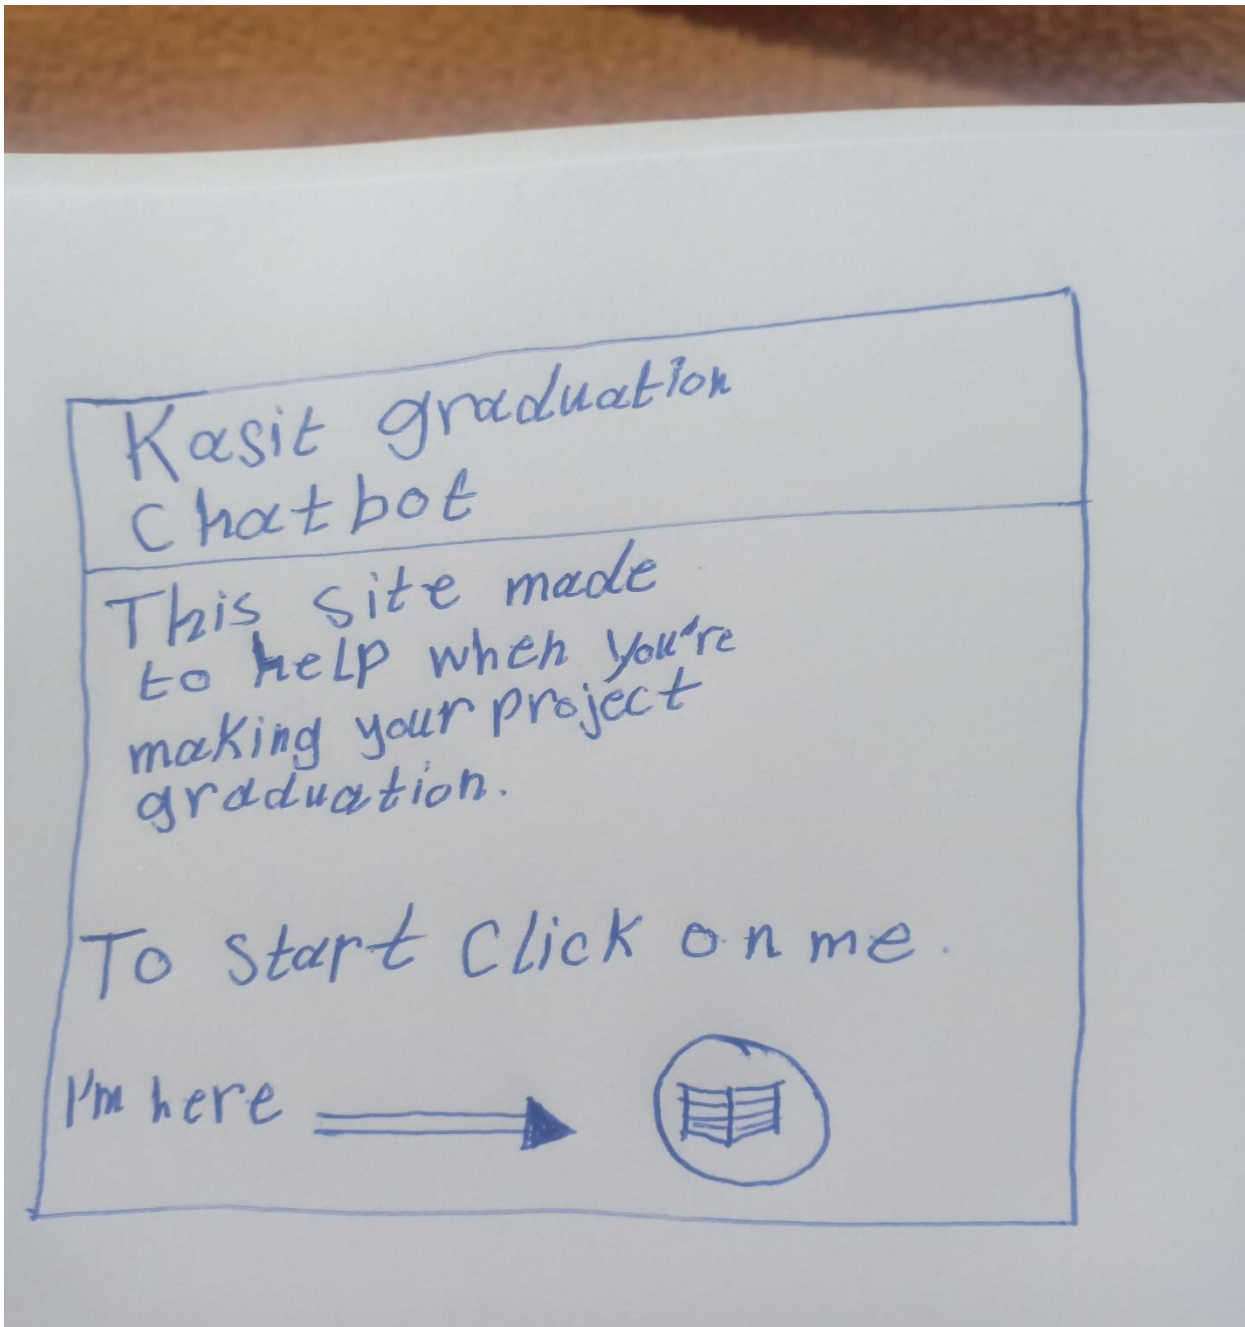 Kasit graduation
Chatbot
This site made
to help when you're
making your project
graduation.
To start Click on me.
I'm here